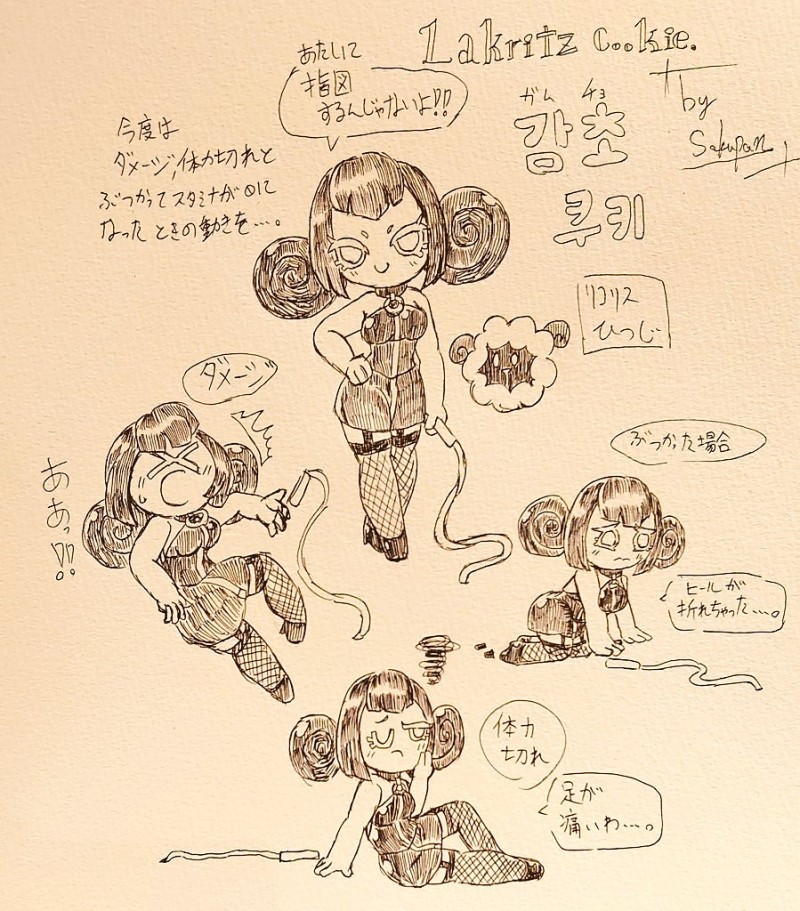 Lakritz Cookie.
by
Sakupan
ガム チョ
감초
쿠키
あたしに
指図
するんじゃないよ!!
今度は
ダメージ,体力切れと
ぶつかってスタミナが0に
なったときの動きを…。
リコリス
ひつじ
ダメージ
ああっ!!
ぶつかった場合
ヒールが
折れちゃった…。
体力
切れ
足が
痛いわ…。